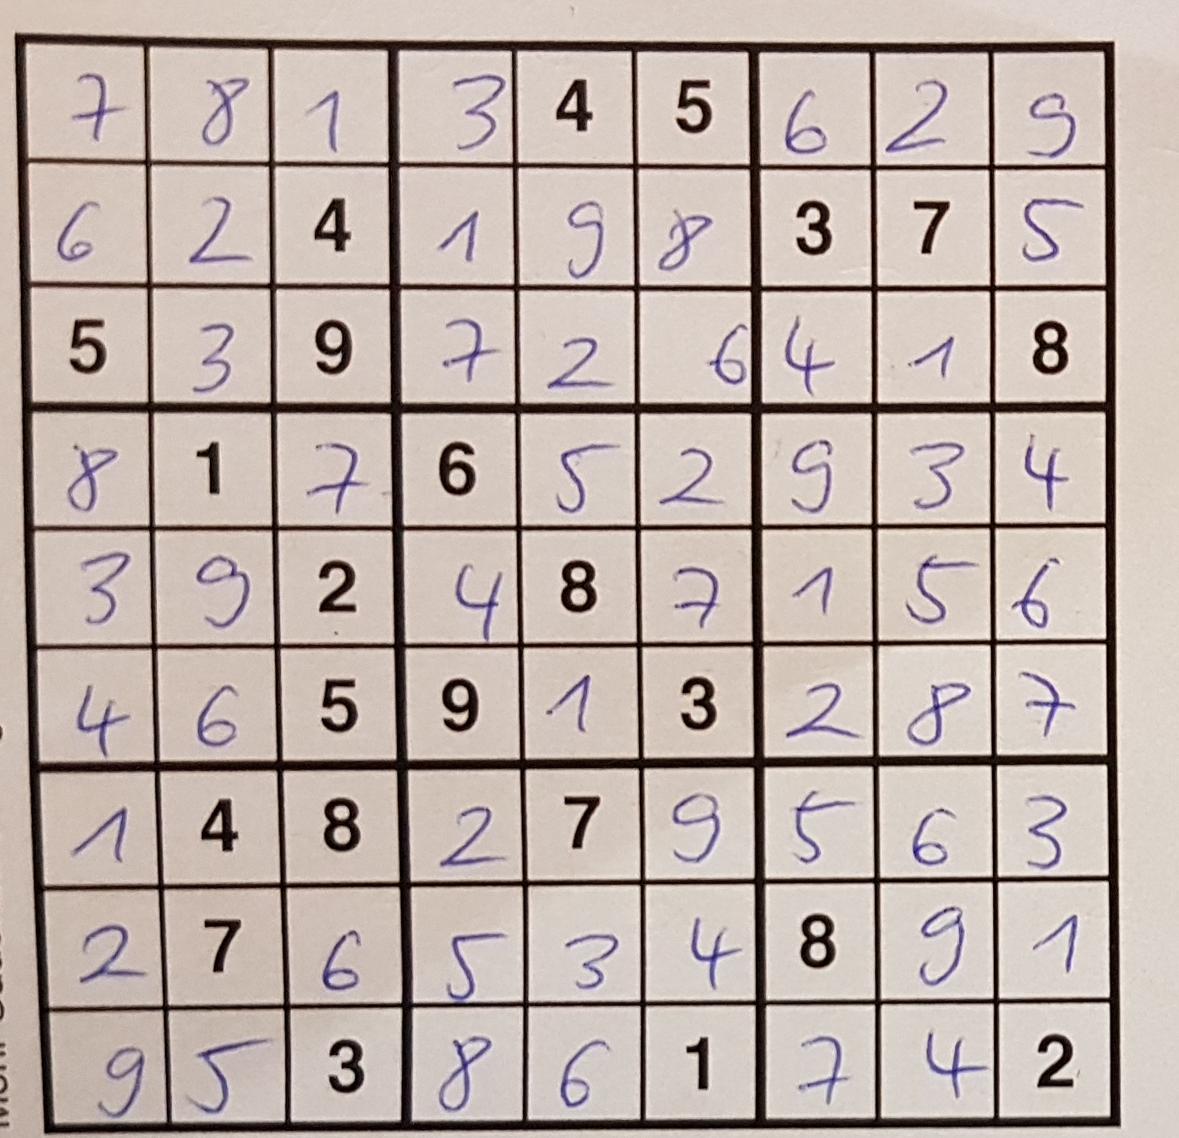 7 8 1 3 4 5 6 2 9
6 2 4 1 9 8 3 7 5
5 3 9 7 2 6 4 1 8
8 1 7 6 5 2 9 3 4
3 9 2 4 8 7 1 5 6
4 6 5 9 1 3 2 8 7
1 4 8 2 7 9 5 6 3
2 7 6 5 3 4 8 9 1
9 5 3 8 6 1 7 4 2